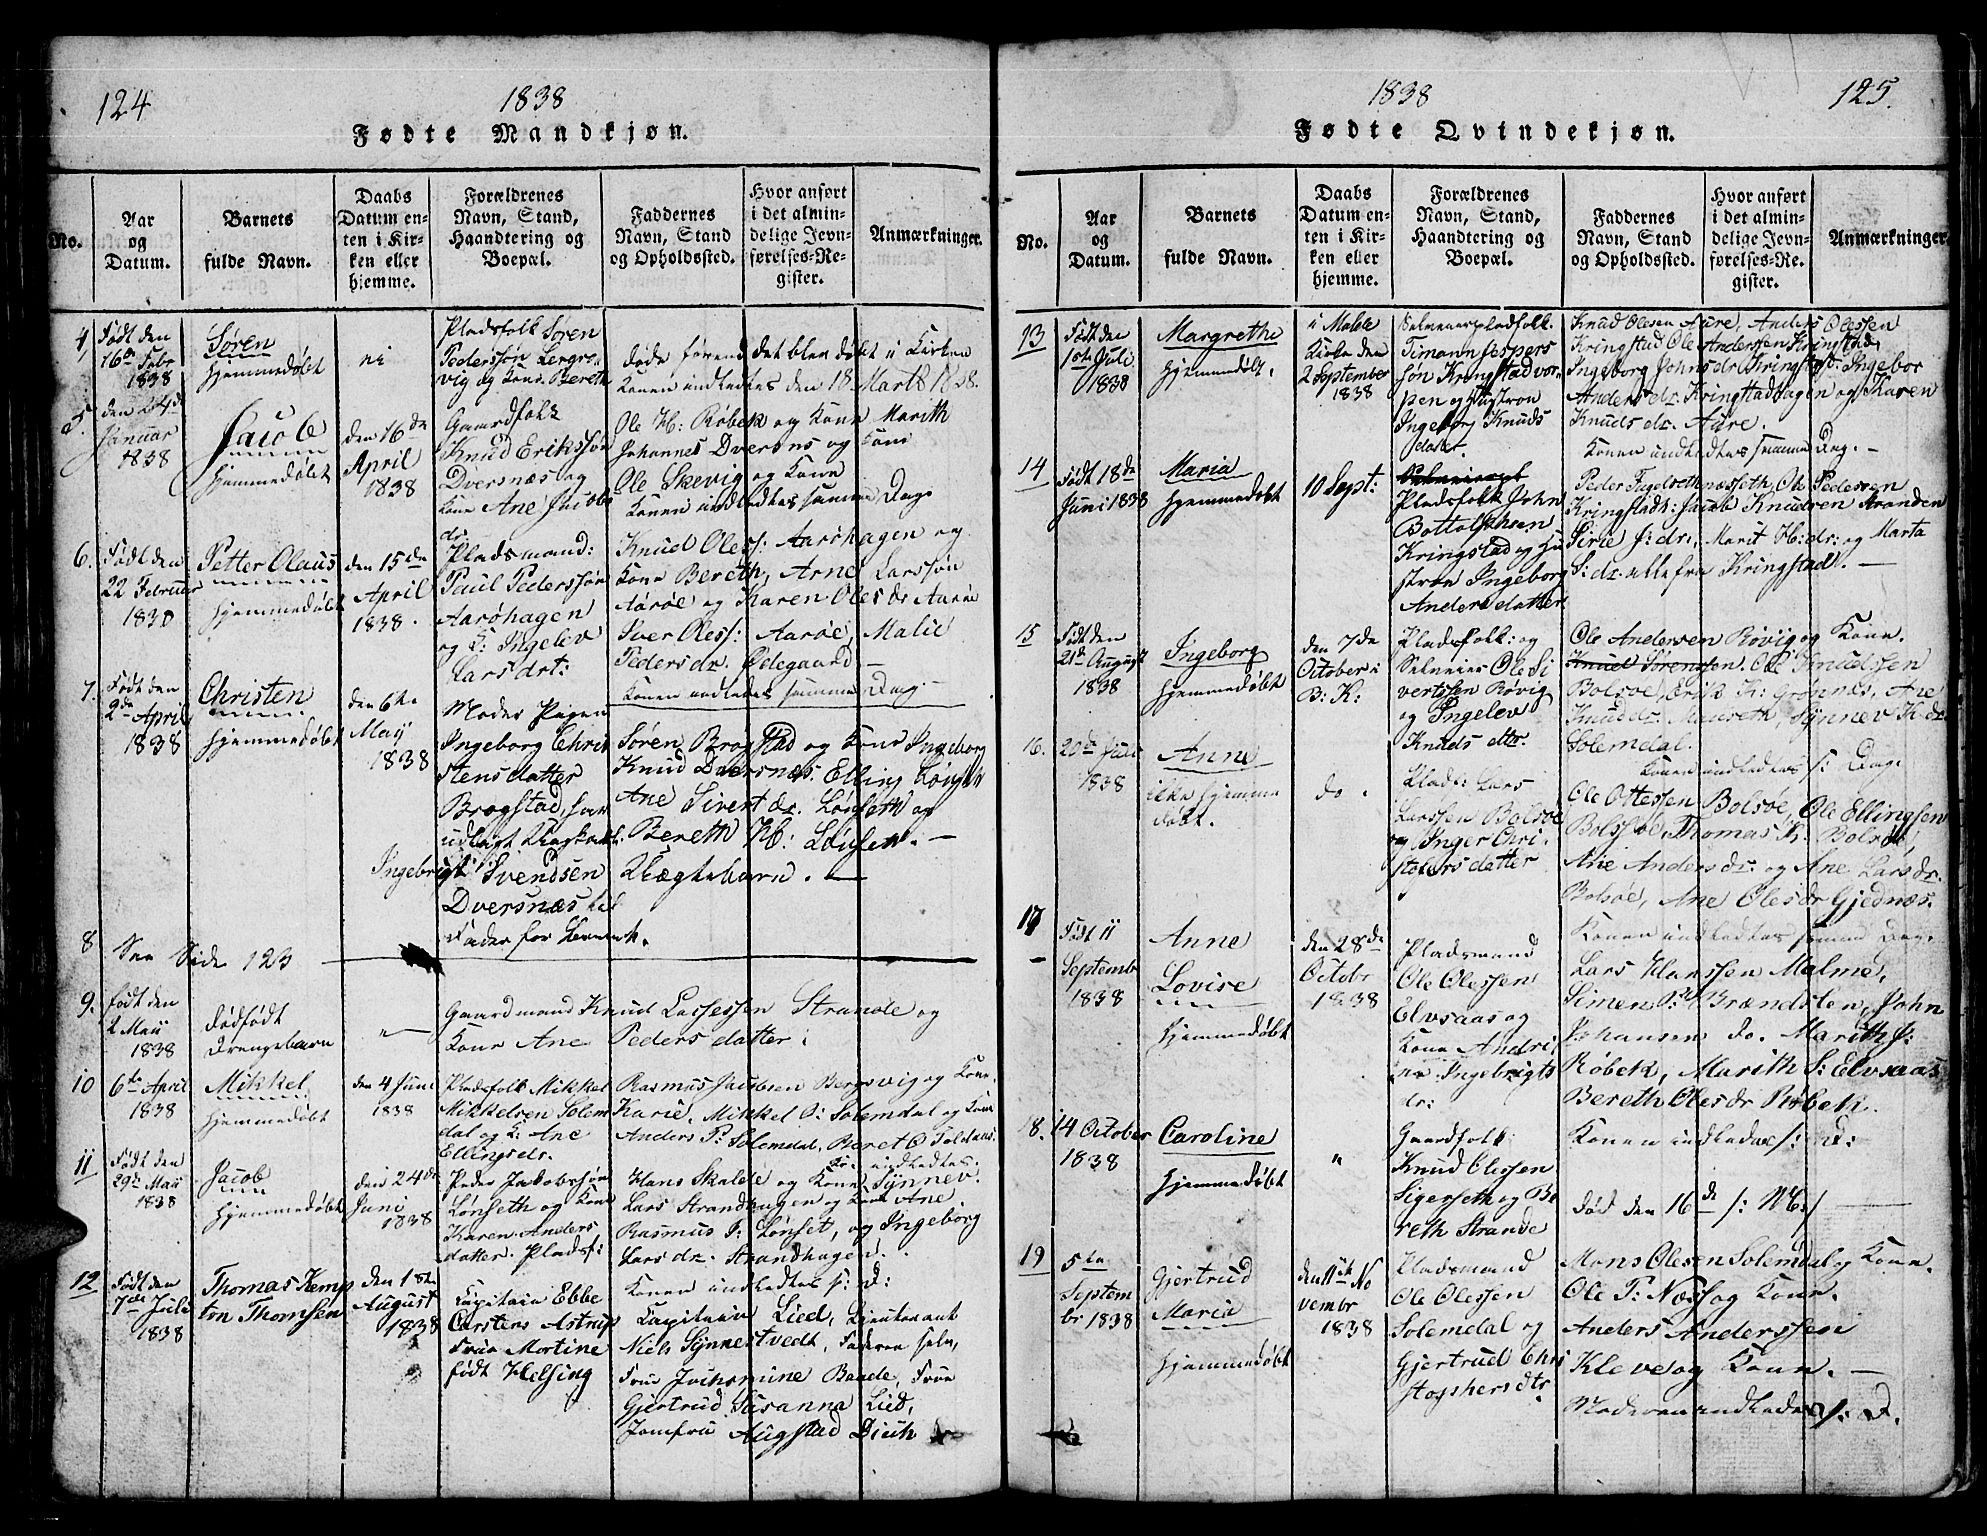 124
1838
Fødte Mandkjøn.
No.
Aar
og
Datum.
Barnets
fulde Navn.
Daabs
Datum en-
ten i Kir-
ken eller
hjemme.
Forældrenes
Navn, Stand,
Haandtering og
Boepæl.
Faddernes
Navn, Stand
og Opholdssted.
Hvor anført
i det almin-
delige Jevn-
førelses-Re-
gister.
Anmærkninger.
4
Født den
16de Febr
1838
Søren
hjemmedøbt
Pladsfolk Søren
Pederssøn
vig og Kone Bereth
døde førend det blev døbt i Kirken
Konen indledtes den 18 Marts 1838.
5.
den 24de
Januar
1838
Jacob
hjemmedøbt
den 16de
April
1838
Gaardfolk
Knud Erikssøn
Dversnæs og
Kone Ane Jacobs
dr.
Ole H: Røbek og Kone Marith
Johannes Dversns og Kone
Ole Skevig og Kone
Konen indledtes samme Dag
6.
Født den
22 Februar
1838
Petter Olaus
hjemmedøbt
den 15de
April
1838.
Pladsmand:
Paul Pederssøn
Aarøhagen
og K: Ingelev
Lars drt:
Knud Oless: Aarøhagen og
Kone Bereth, Arne Larssøn
Aarøe og Karen Oles dr Aarøe
Iver Oless: Aarøe, Malie
Peders dr. Ødegaard —
Konen indledtes samme Dag. —
7.
Født den
2de April
1838
Christen
hjemmedøbt
den 6te
May
1838
Moder Pigen
Ingeborg Chris
tensdatter
Bragstad, har
udlagt Ungkarl
Ingebrigt Svendsen
Dversnæs til
Fader for Barnet.
Søren Bragstad og Kone Ingeborg
Knud Dversnæs. Elling Lønset
Ane Sivert dr. Lønseth og
Bereth H: Lønset. —
Uægtebarn. —
8
See Side 123
9.
født den
2 Maii
1838
dødfødt
Drengebarn
Gaardmand Knud Lassessen Strande og
Kone Ane Peders datter:
10
6te April
1838
Mikkel
hjemmedøbt
den 4 Juni
1838
Pladsfolk Mikkel
Mikkelsen Solem
dal og K. Ane
Ellingsdr.
Rasmus Jacobsen Bergsvig og Kone
Karie, Mikkel O: Solemdal og Kone
Anders P: Solemdal, Beret O
Ko: indledtes.
11
Født den
29de Maii
1838
Jacob
hjemmedøbt
den 24de
Juni
1838
Peder Jakobssøn
Lønseth og Kone
Karen Anders
datter. Pladsf:
Hans Skalde og Kone Synnev.
Lars Strandhagen og Kone Ane
Rasmus J: Lønset, og Ingeborg
Lars dr. Strandhagen.
Konen indledtes s: D:
12
Født den
7de Juli
1838
Thomas Kemp
ton Thomsen
den 1ste
August
1838
Capitain Ebbe
Carstens Astrup
Frue Mortine
født Helsing
Capitain Lied, Lieutenant
Niels Synnestvedt, Faderen selv,
Frue Jochomine Bande, Frue
Gjertrud Susanna Lied,
Jomfru Augstad
1838
125.
Fødte Qvindekjøn.
No.
Aar
og
Datum.
Barnets
fulde Navn.
Daabs
Datum en-
ten i Kir-
ken eller
hjemme.
Forældrenes
Navn, Stand,
Haandtering og
Boepæl.
Faddernes
Navn, Stand
og Opholdssted.
Hvor anført
i det almin-
delige Jevn-
førelses-Re-
gister.
Anmærkninger.
13
Født den
1ste Juli
1838
Margrethe
hjemmedøbt.
i Molde
Kirke den
2 September
1838
Selveierpladsfolk.
Timann Jespers
søn Kringstad vor-
pen og Hustrou
Ingeborg Knuds
dater.
Knud Olesen Aure, Anders Olessen
Kringstad Ole Anderssen Kringstad.
Ingeborg Johns dr. Kringstad: Ingebor
Anders dr. Kringstadhagen og Karen
Knuds dr. Aure.
Konen indledtes samme Dag. —
14
Født 18de
Juni 1838
Maria
hjemmedøbt
10 Sept:
Pladsfolk John
Bottolphsen
Kringstad og Hu
strou Ingeborg
Andersdatter
Peder Fugelsethnæsseth, Ole Pederssen
Kringstads: Jacob Knudsen Stranden
Sirie J: dr:, Marit H: dr: og Marta
S: dr. alle fra Kringstad. —
15
Født den
21de August
1838
Ingeborg
hjemmedøbt
den 7de
October i
B: K:
Pladsfolk og
Selveier Ole Si
vertssen Røvig
og Ingelev
Knuds dtr.
Ole Andersen Røvig og Kone.
Knud Sørenssen. Ole Knudssen
Bolsøe, Erik K: Grønnes, Ane
Knuds dr. Synnev K dr.
Solemdal.
Konen indledtes s: Dag.
16.
20de Juli
1838
Anne
ikke hjemme
døbt.
do.
Plads: Lars
Larssen Bolsøe
og Inger Chri-
stofersdatter
Ole Ottessen Bolsøe, Ole Ellingsen
Bolssøe, Thomas K: Bolsøe,
Ane Anders dr: og Ane Lars dr.
Bolsøe, Ane Olesdr Gjednæs.
Konen indledtes samme Dag.
17
Født 11
Septembr
1838
Anne
Lovise
hjemmedøbt
den 28de
Octobr
1838
Pladsmand
Ole Olessen
Elvsaas og
Kone Andri-
ne Ingebrigts
dr:
Lars Hanssen Malme,
Simen P: Brændslen, John
Johansen do. Marith J:
Røbek, Marith S: Elvsaas
Bereth Olesdr Røbek.
Konen indledtes s: D:
18.
14 October
1838
Caroline
hjemmedøbt
"
Gaardfolk
Knud Olessen
Sigerseth og Be
reth Strande
død den 16de /: NB:/
19
5te
Septem
br 1838
Gjertrud
Maria
hjemmedøbt
den 11te No
vembr
1838
Pladsmand
Ole Olessen
Solemdal og
Gjertrud Chri
stophersdtr
Mons Olesen Solemdal og Kone.
Ole P: Næss og Kone.
Anders Anderssen
Kleve og Kone. —
Moderen indledes s: D.